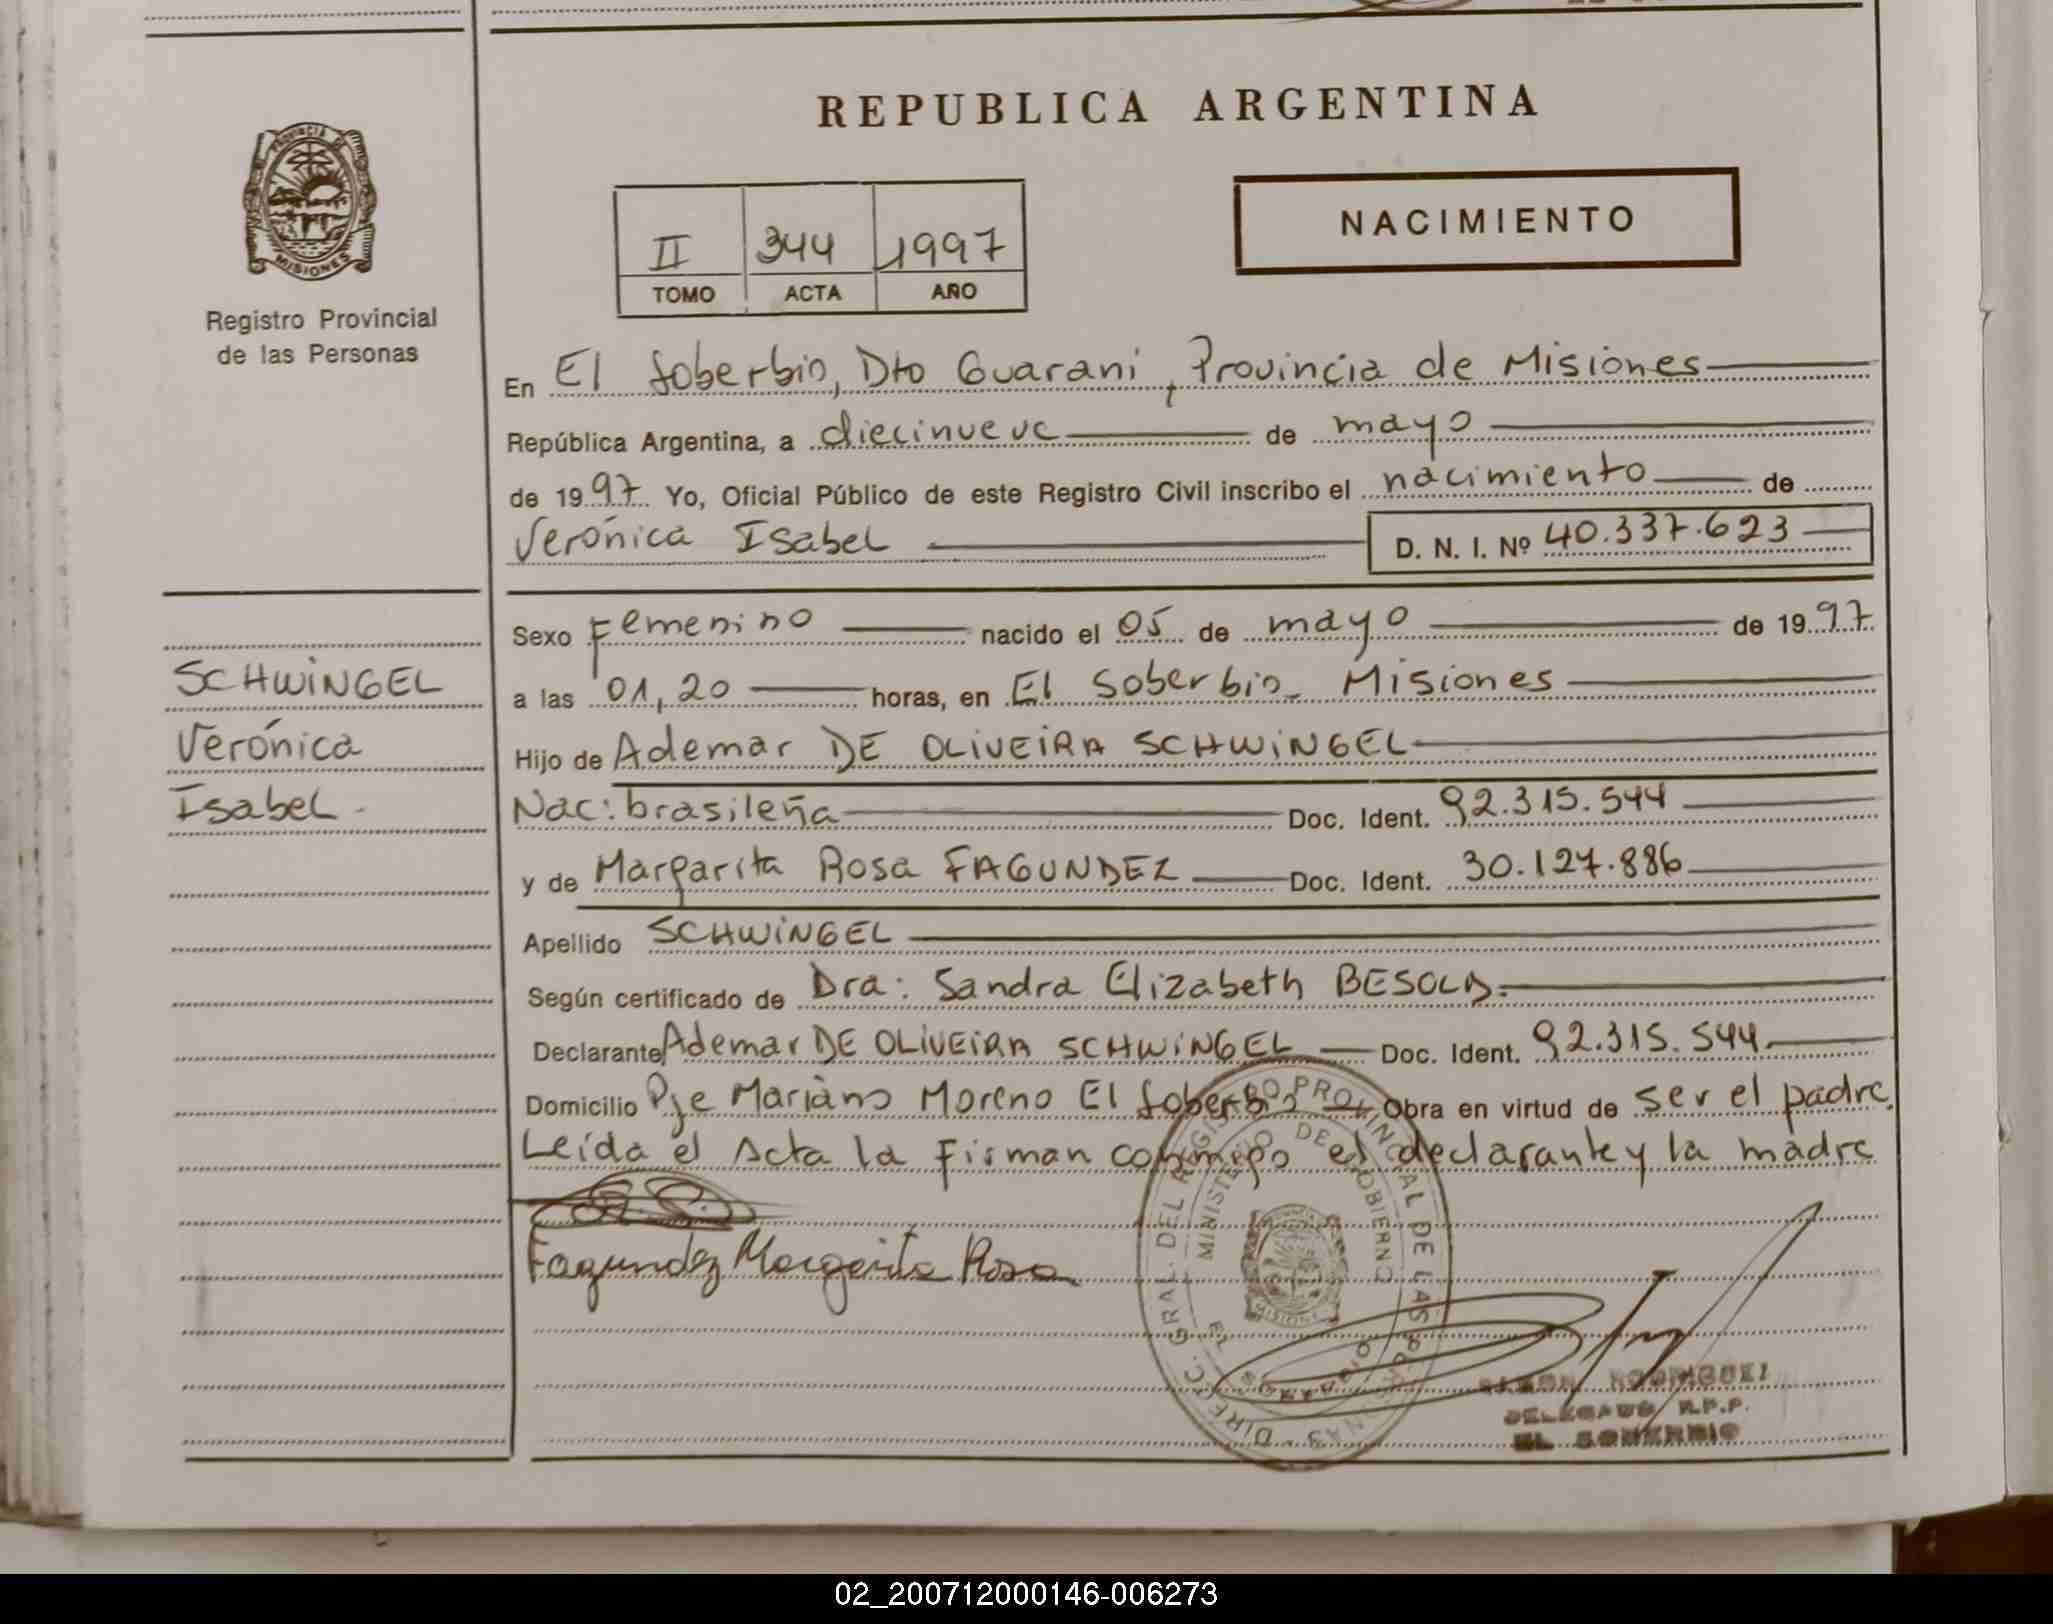 REPUBLICA ARGENTINA
PROVINCIA DE
MISIONES
Registro Provincial
de las Personas
NACIMIENTO
II 344 1997
TOMO ACTA AÑO
En El Soberbio, Dto Guarani, Provincia de Misiones
República Argentina, a diecinueve de mayo
de 1997 Yo, Oficial Público de este Registro Civil inscribo el nacimiento de
Verónica Isabel D. N. I. Nº 40.337.623
Sexo Femenino nacido el 05 de mayo de 1997
a las 01,20 horas, en El Soberbio Misiones
Hijo de Ademar DE OLIVEIRA SCHWINGEL
Nac: brasileña Doc. Ident. 92.315.544
y de Margarita Rosa FAGUNDEZ Doc. Ident. 30.127.886
Apellido SCHWINGEL
Según certificado de Dra: Sandra Elizabeth BESOLD.
Declarante Ademar DE OLIVEIRA SCHWINGEL Doc. Ident. 92.315.544
Domicilio Pje Mariano Moreno El Soberbio Obra en virtud de ser el padre.
Leída el Acta la Firman conmigo el declarante y la madre
SCHWINGEL
Verónica
Isabel.
Fagundez Margarita Rosa
DIREC. GRAL. DEL REGISTRO PROVINCIAL DE LAS PERSONAS
MINISTERIO DE GOBIERNO
MISIONES
EL SOBERBIO
RAMON RODRIGUEZ
DELEGADO R.P.P.
EL SOBERBIO
02_200712000146-006273